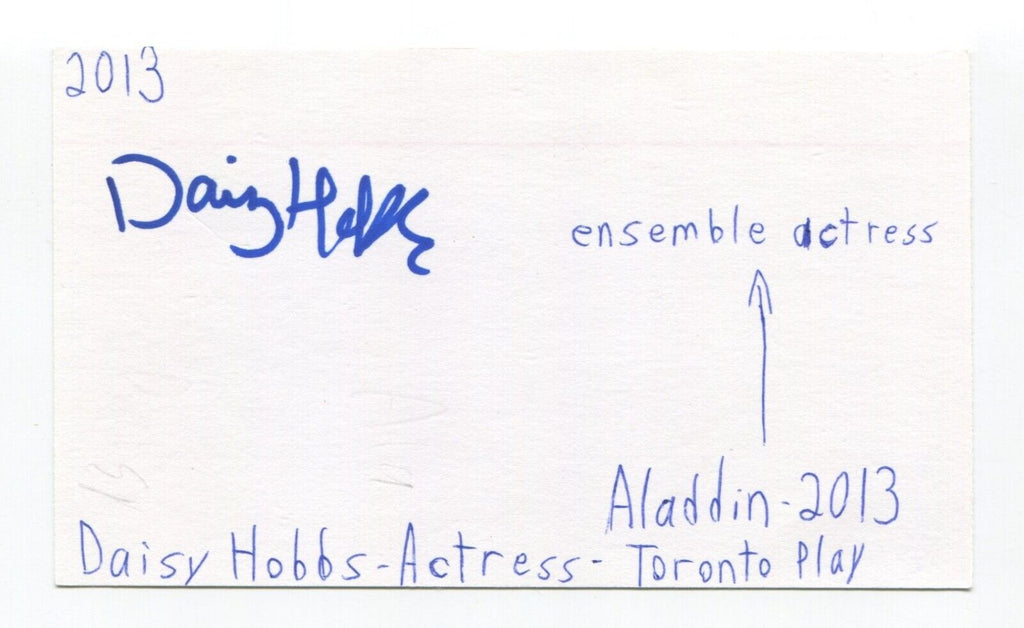 2013
Daisy Hobbs
ensemble actress
Aladdin-2013
Daisy Hobbs-Actress-Toronto Play